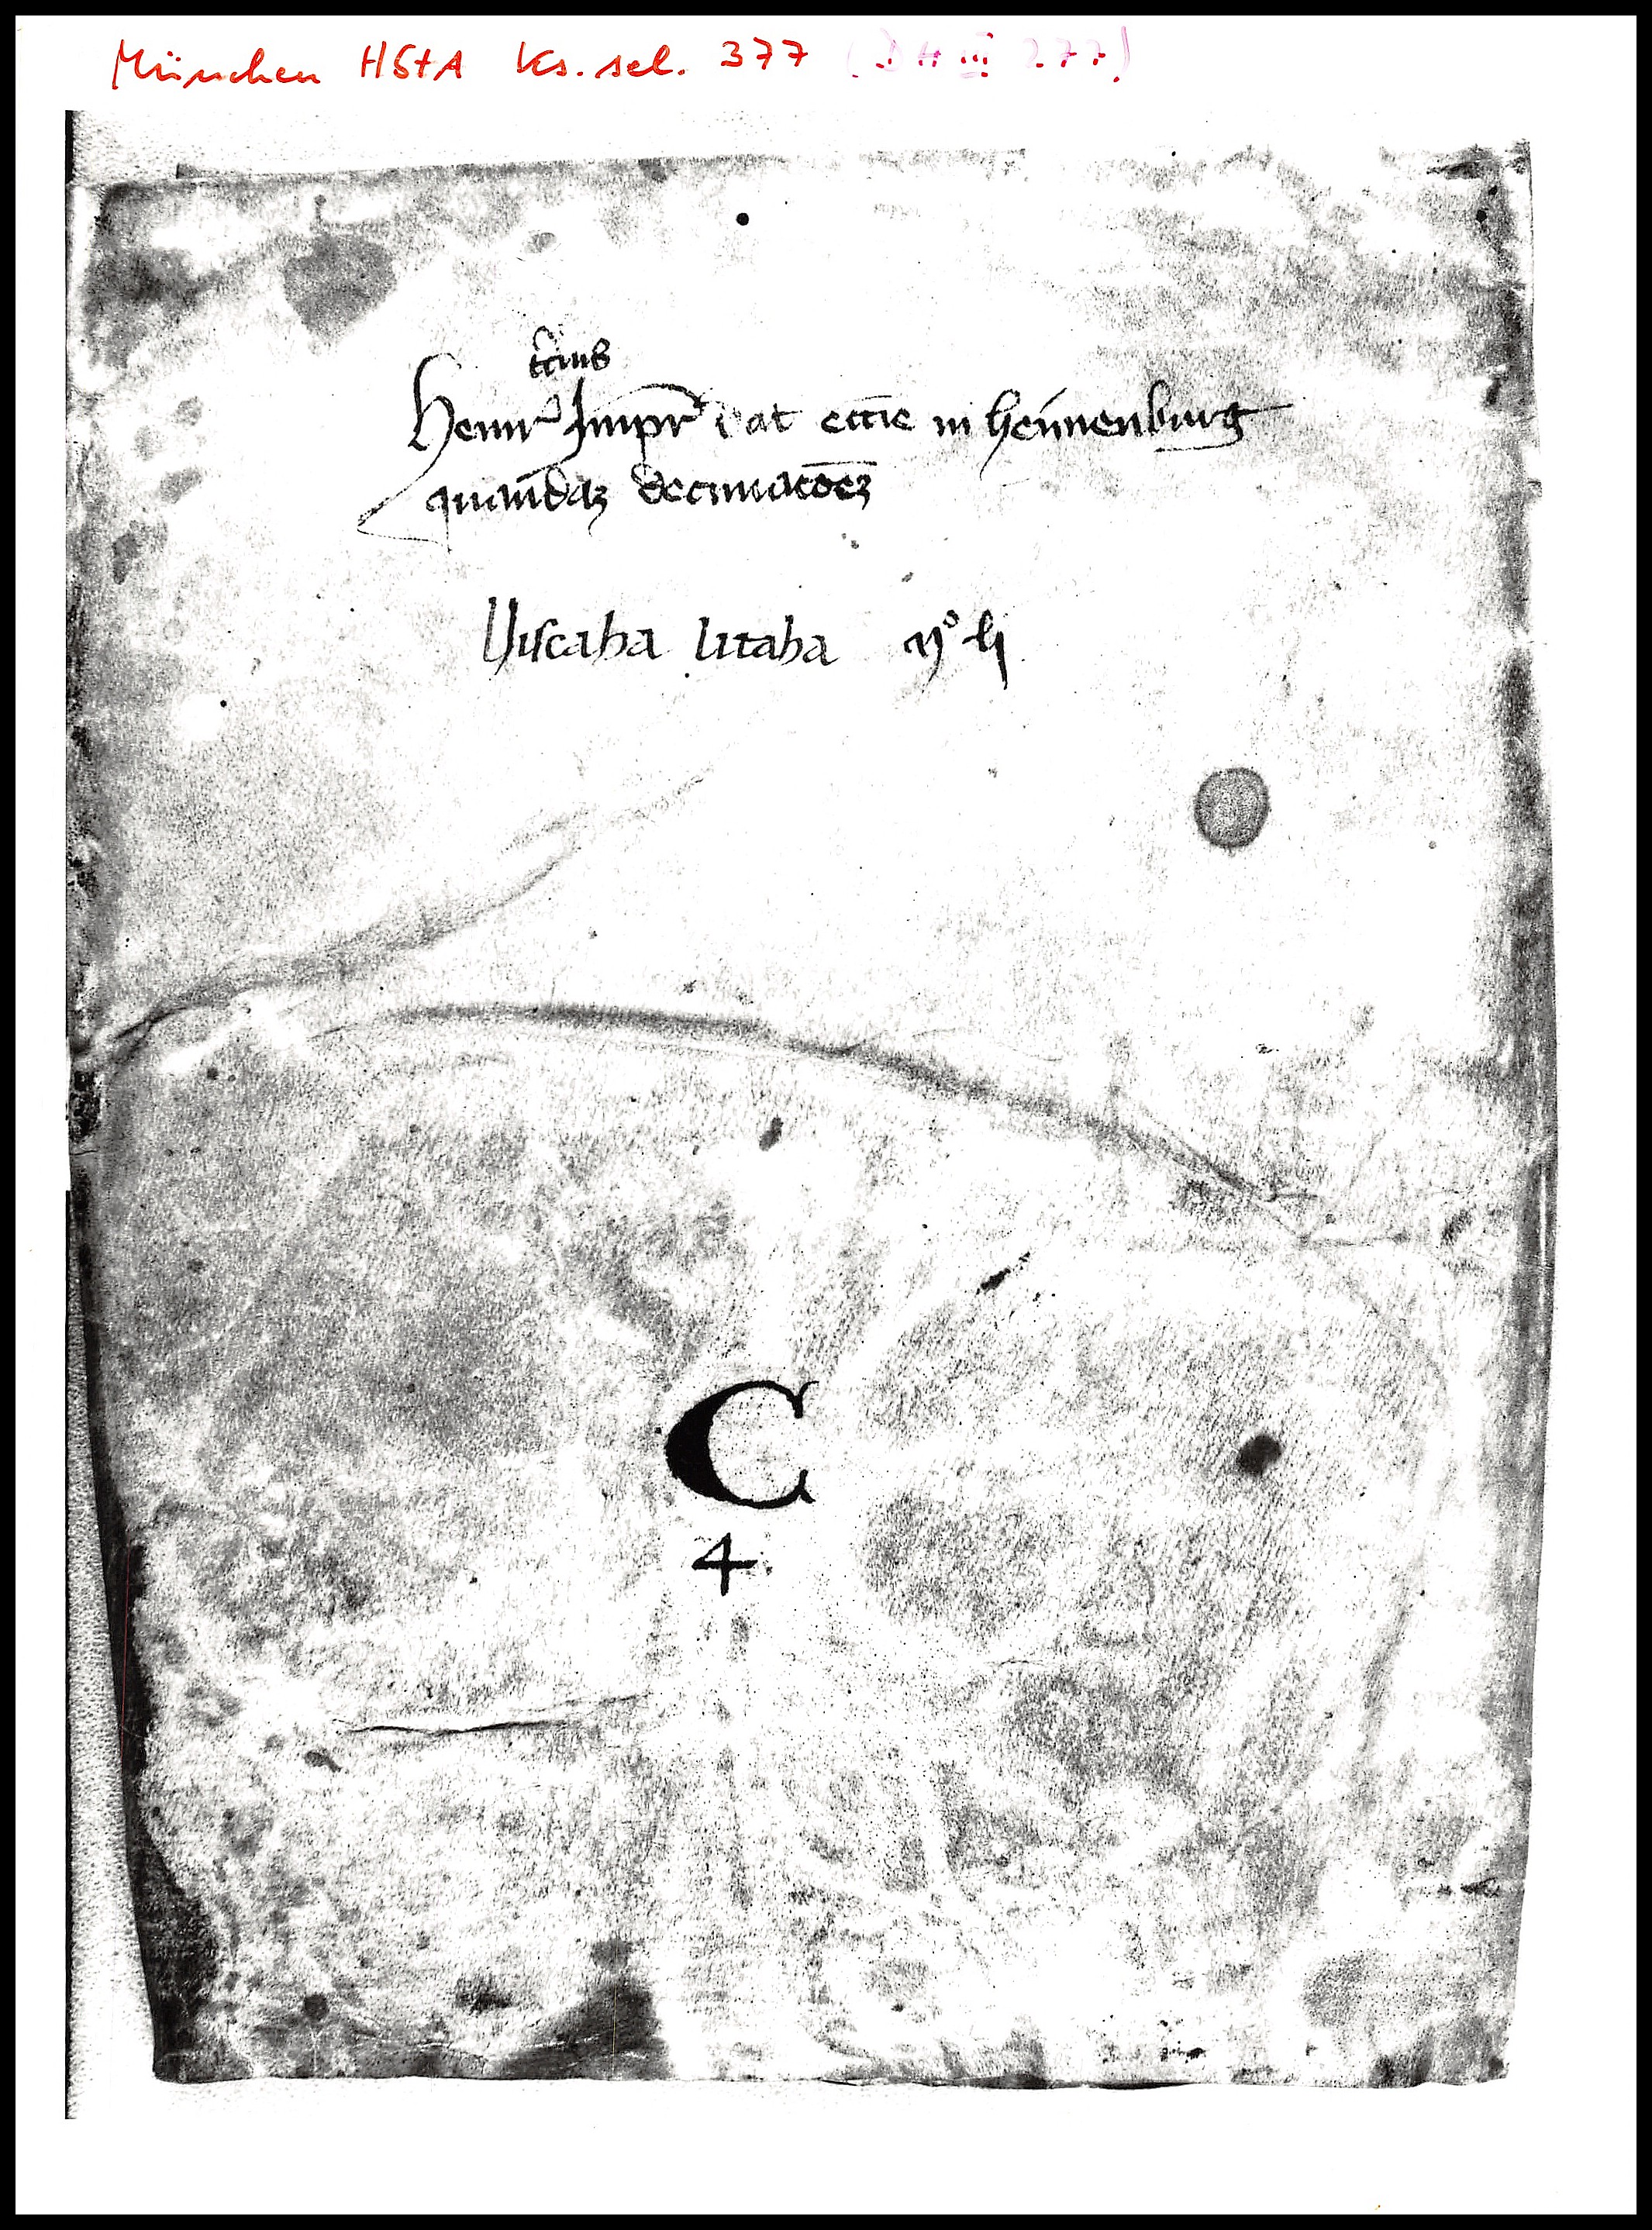 München HStA Ks. sel. 377 (DH III 277)
tcius
Heinr Impr dat eccie in heinenburg
quandaz decimacoez
Viscaha litaha
C
4